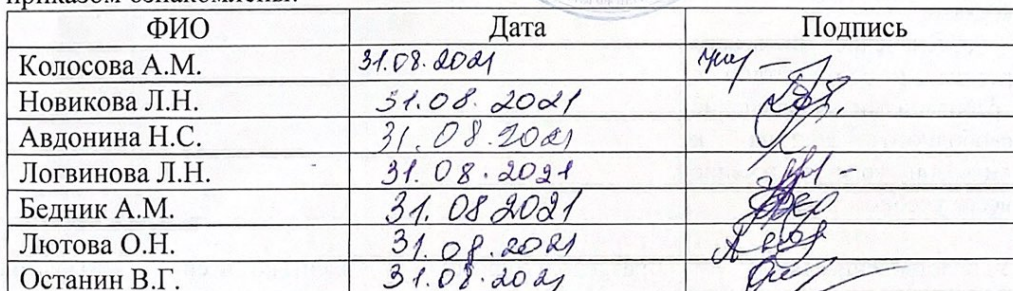 приказом ознакомлены:
ФИО Дата Подпись
Колосова А.М. 31.08.2021
Новикова Л.Н. 31.08.2021
Авдонина Н.С. 31.08.2021
Логвинова Л.Н. 31.08.2021
Бедник А.М. 31.08 2021
Лютова О.Н. 31.08.2021
Останин В.Г. 31.08.2021